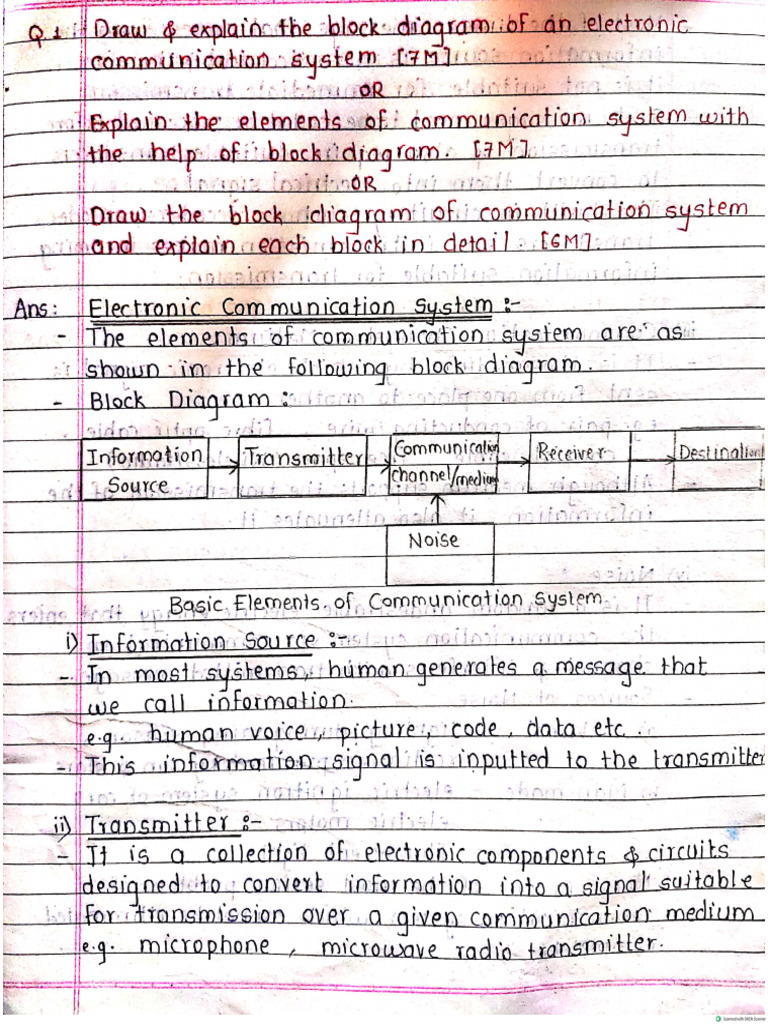 Q.1 Draw & explain the block diagram of an electronic
communication system [7M]
OR
Explain the elements of communication system with
the help of block diagram. [7M]
OR
Draw the block diagram of communication system
and explain each block in detail. [6M].
Ans: Electronic Communication System :-
- The elements of communication system are as
shown in the following block diagram.
- Block Diagram :
Information Source
Transmitter
Communication channel/medium
Receiver
Destination
Noise
Basic Elements of Communication System.
i) Information Source :-
- In most systems, human generates a message that
we call information.
e.g. human voice, picture, code, data etc.
- This information signal is inputted to the transmitter
ii) Transmitter :-
- It is a collection of electronic components & circuits
designed to convert information into a signal suitable
for transmission over a given communication medium
e.g. microphone, microwave radio transmitter.